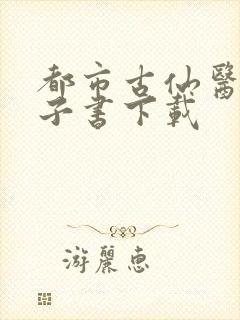 都市古仙醫
子書下載
游麗惠